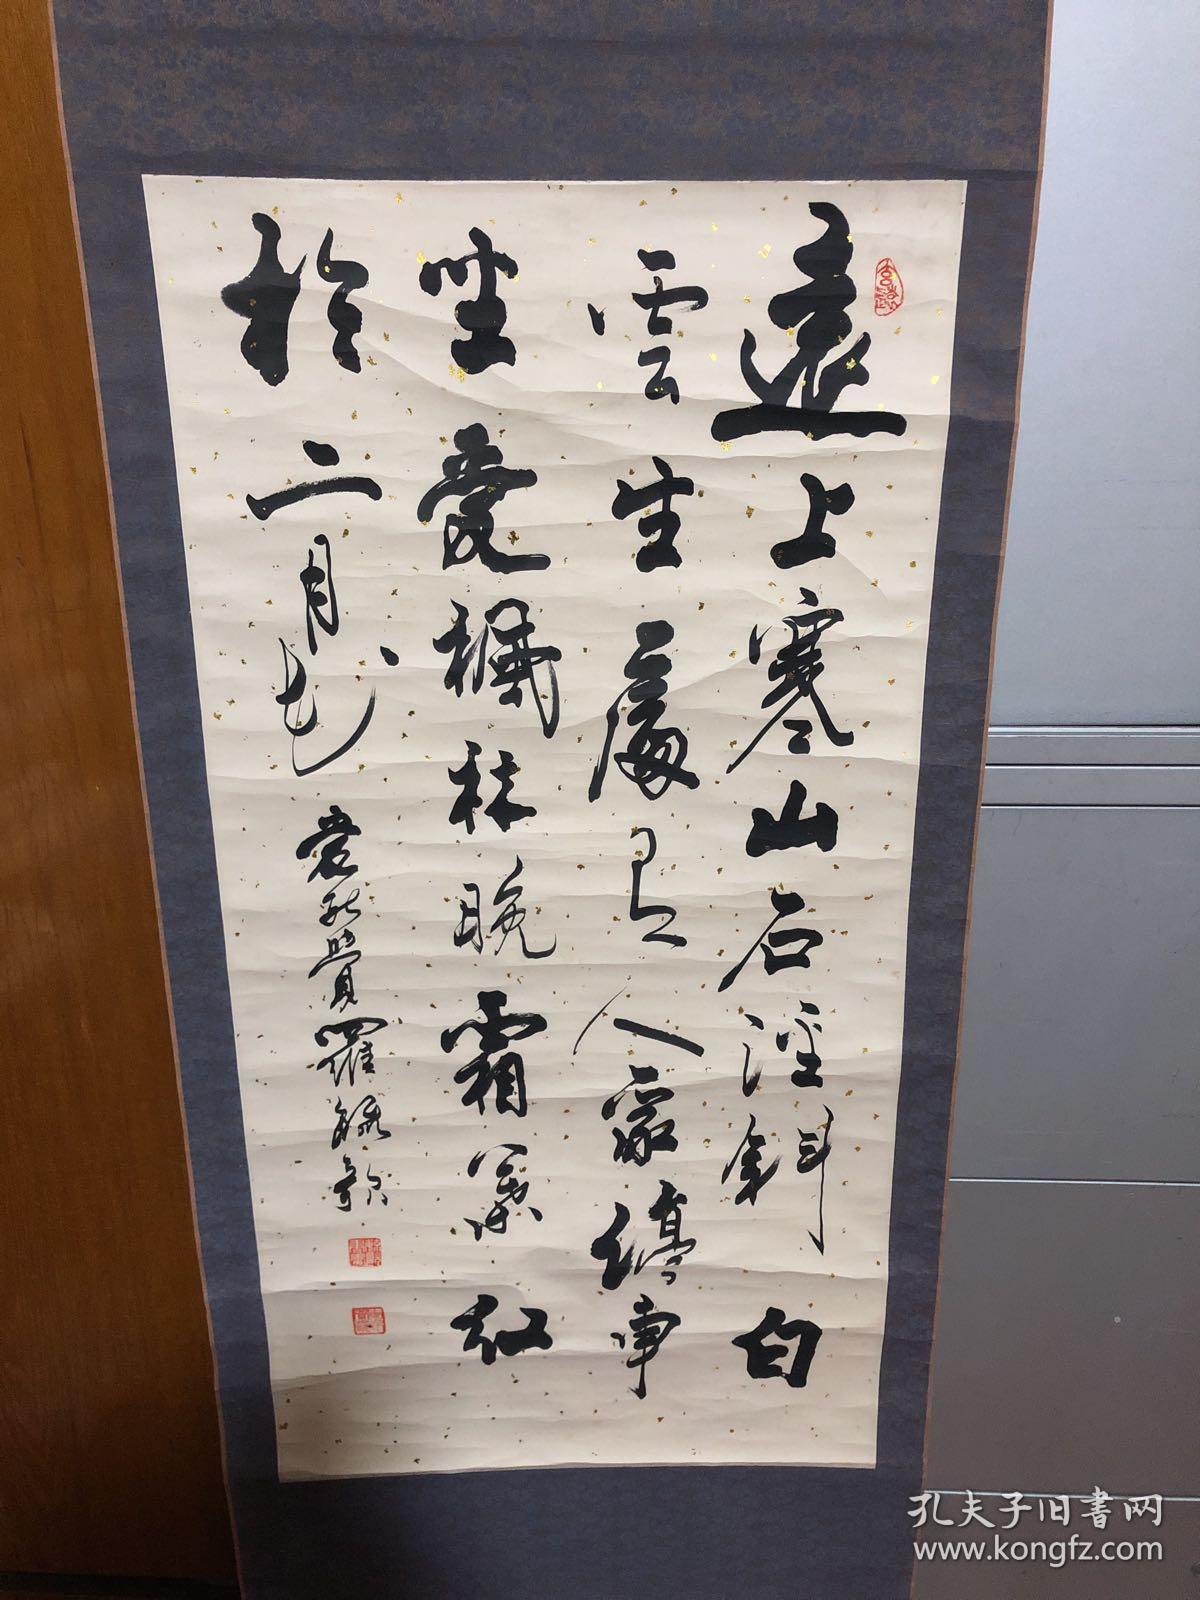 遠上寒山石淫斜白
雲生處有人家停車
坐愛楓林晚霜葉紅
於二月花
愛新覺羅毓歆
孔夫子旧書网
www.kongfz.com